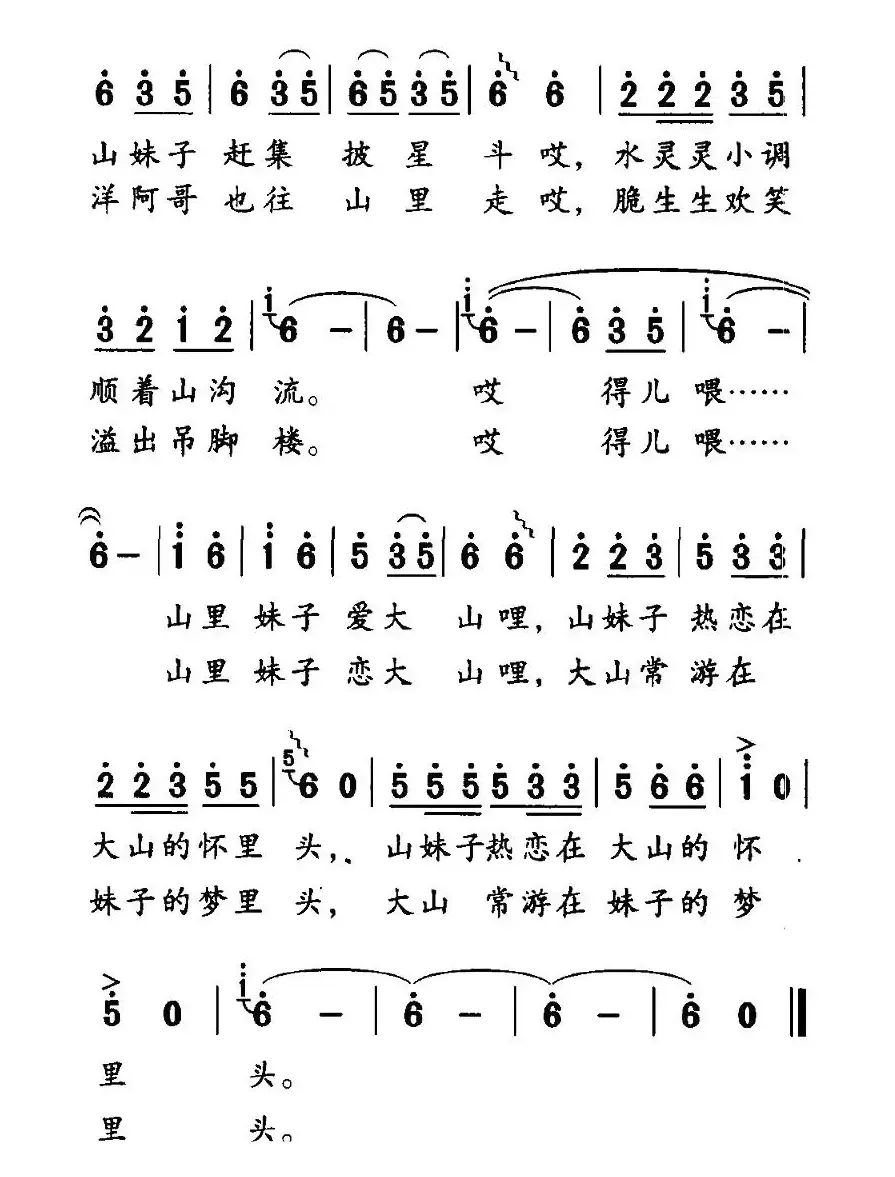 6 3 5 | 6 3 5 | 6 5 3 5 | 6 6 | 2 2 2 3 5 |
山妹子赶集 披星 斗哎，水灵灵小调
洋阿哥也往 山里 走哎，脆生生欢笑
3 2 1 2 | i 6 - | 6 - | i 6 - | 6 3 5 | i 6 - |
顺着山沟 流。 哎 得儿喂……
溢出吊脚 楼。 哎 得儿喂……
6 - | 1 6 | 1 6 | 5 3 5 | 6 6 | 2 2 3 | 5 3 3 |
山里 妹子 爱大 山哩，山妹子 热恋在
山里 妹子 恋大 山哩，大山常 游在
2 2 3 5 5 | 5 6 0 | 5 5 5 5 3 3 | 5 6 6 | 1 0 |
大山的怀里 头， 山妹子热恋在 大山的 怀
妹子的梦里 头， 大山 常游在 妹子的 梦
5 0 | i 6 - | 6 - | 6 - | 6 0
里 头。
里 头。